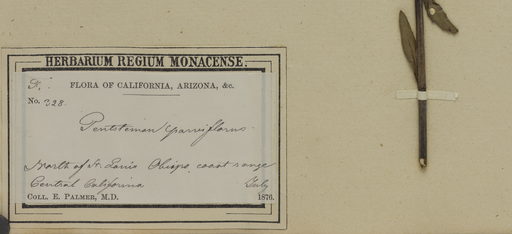 HERBARIUM REGIUM MONACENSE.
FLORA OF CALIFORNIA, ARIZONA, &c.
No. 328
Pentstemon parviflorus.
North of St. Louis Obispo, coast range
Central California July
COLL. E. PALMER, M.D. 1876.